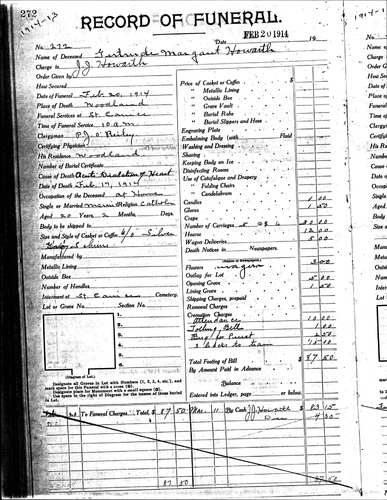 272
1914-15
RECORD OF FUNERAL.
FEB 20 1914
Date 19
No. 272
Name of Deceased Gertrude Margaret Howarth
Charge to J.J. Howarth
Order Given by
How Secured
Date of Funeral Feb 20, 1914
Place of Death Woodland
Funeral Services at St.
Time of Funeral Service 10 A.M.
Clergyman P.J. O'
Certifying Physician
His Residence Woodland
Number of Burial Certificate
Cause of Death Acute Dilatation of Heart
Date of Death Feb 17, 1914
Occupation of the Deceased at Home
Single or Married Religion Catholic
Aged 20 Years 2 Months, Days
Body to be shipped to
Size and Style of Casket or Coffin 6/0 Silver
Manufactured by
Metallic Lining
Outside Box
Number of Handles
Interment at St. Cemetery.
Lot or Grave No. Section No.
1.
2.
3.
4.
5.
6.
(Diagram of Lot.)
Designate all Graves in Lot with Numbers (1, 2, 3, 4, etc.), and
mark space for this Funeral with a cross (X).
Designate place for Monument with a square (□).
Use space to the right of Diagram for the names of those buried
in Lot.
Price of Casket or Coffin $
" Metallic Lining
" Outside Box
" Grave Vault
" Burial Robe
" Burial Slippers and Hose
Engraving Plate
Embalming Body (with Fluid
Washing and Dressing
Shaving
Keeping Body on Ice
Disinfecting Rooms
Use of Catafalque and Drapery
" Folding Chairs
" Candelabrum
Candles 1 00
Gloves 1 50
Crape
Number of Carriages 5 @ 4 20 00
Hearse 12 00
Wagon Deliveries 5 00
Death Notices in Newspapers.
(Names of Newspapers.)
Flowers 3 00
Outlay for Lot 5 00
Opening Grave 1 50
Lining Grave
Shipping Charges, prepaid
Removal Charges
Cremation Charges
Attendance 10 00
Tolling Bells 1 00
Total Footing of Bill $ 87 50
By Amount Paid in Advance
Balance
Entered into Ledger, page or below.
To Funeral Charges Total, $ 87 50 Mar. 11 By Cash J.J. Howarth $ 83 15
4 35
87 50 87 50